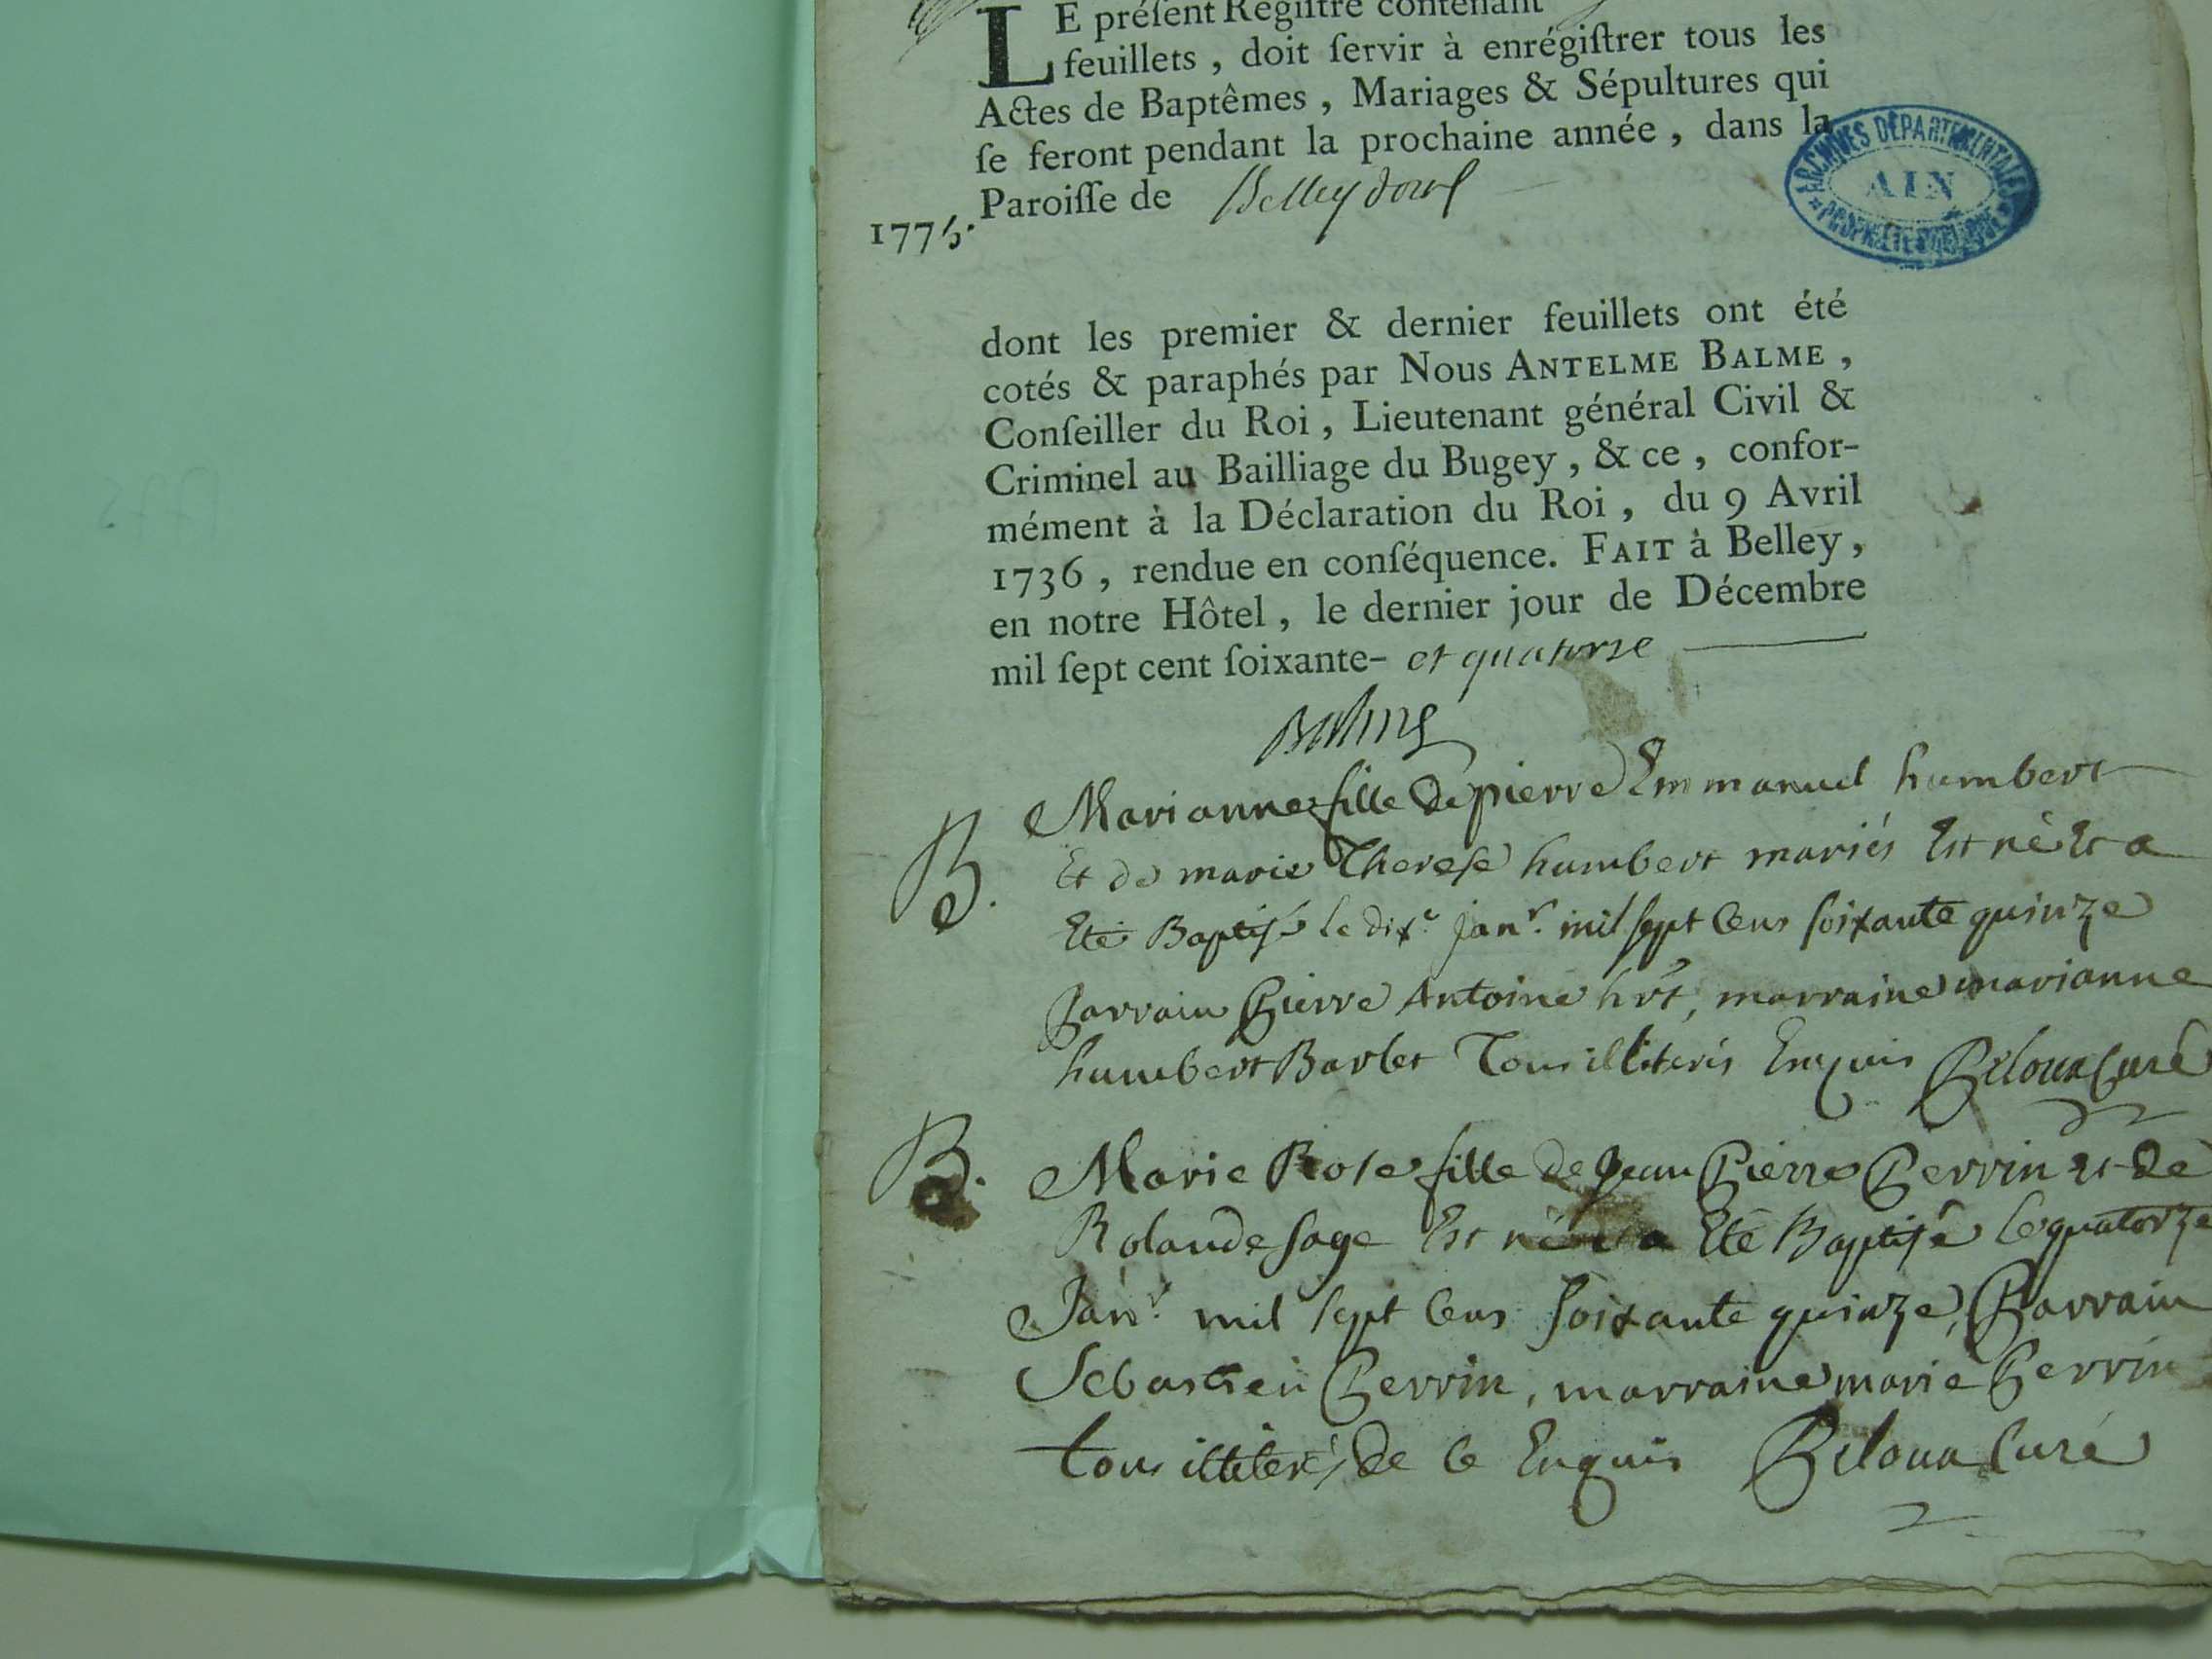 LE préſent Regiſtre contenant
feuillets, doit ſervir à enrégiſtrer tous les
Actes de Baptêmes, Mariages & Sépultures qui
ſe feront pendant la prochaine année, dans la
Paroiſſe de Belleydoux
1775.
ARCHIVES DÉPARTEMENTALES
AIN
PROPRIÉTÉ PUBLIQUE
dont les premier & dernier feuillets ont été
cotés & paraphés par Nous ANTELME BALME,
Conſeiller du Roi, Lieutenant général Civil &
Criminel au Bailliage du Bugey, & ce, confor-
mément à la Déclaration du Roi, du 9 Avril
1736, rendue en conſéquence. FAIT à Belley,
en notre Hôtel, le dernier jour de Décembre
mil ſept cent ſoixante- et quatorze
Balme
B. Marianne fille de pierre Emmanuel humbert
Et de marie Therese humbert mariés Est né Et a
Eté Baptisé le dix.e janr. mil sept Cens soixante quinze
Parrain Pierre Antoine hrt, marraine marianne
humbert Barbet Tous illiterés Enquis Curé
B. Marie Rose fille de Jean Pierre Perrin et de
Rolande sage Est né et a Eté Baptisé le quatorze
Janr. mil sept Cens soixante quinze, Parrain
Sebastien Perrin, marraine marie Perrin
tous illiterés de ce Enquis Curé